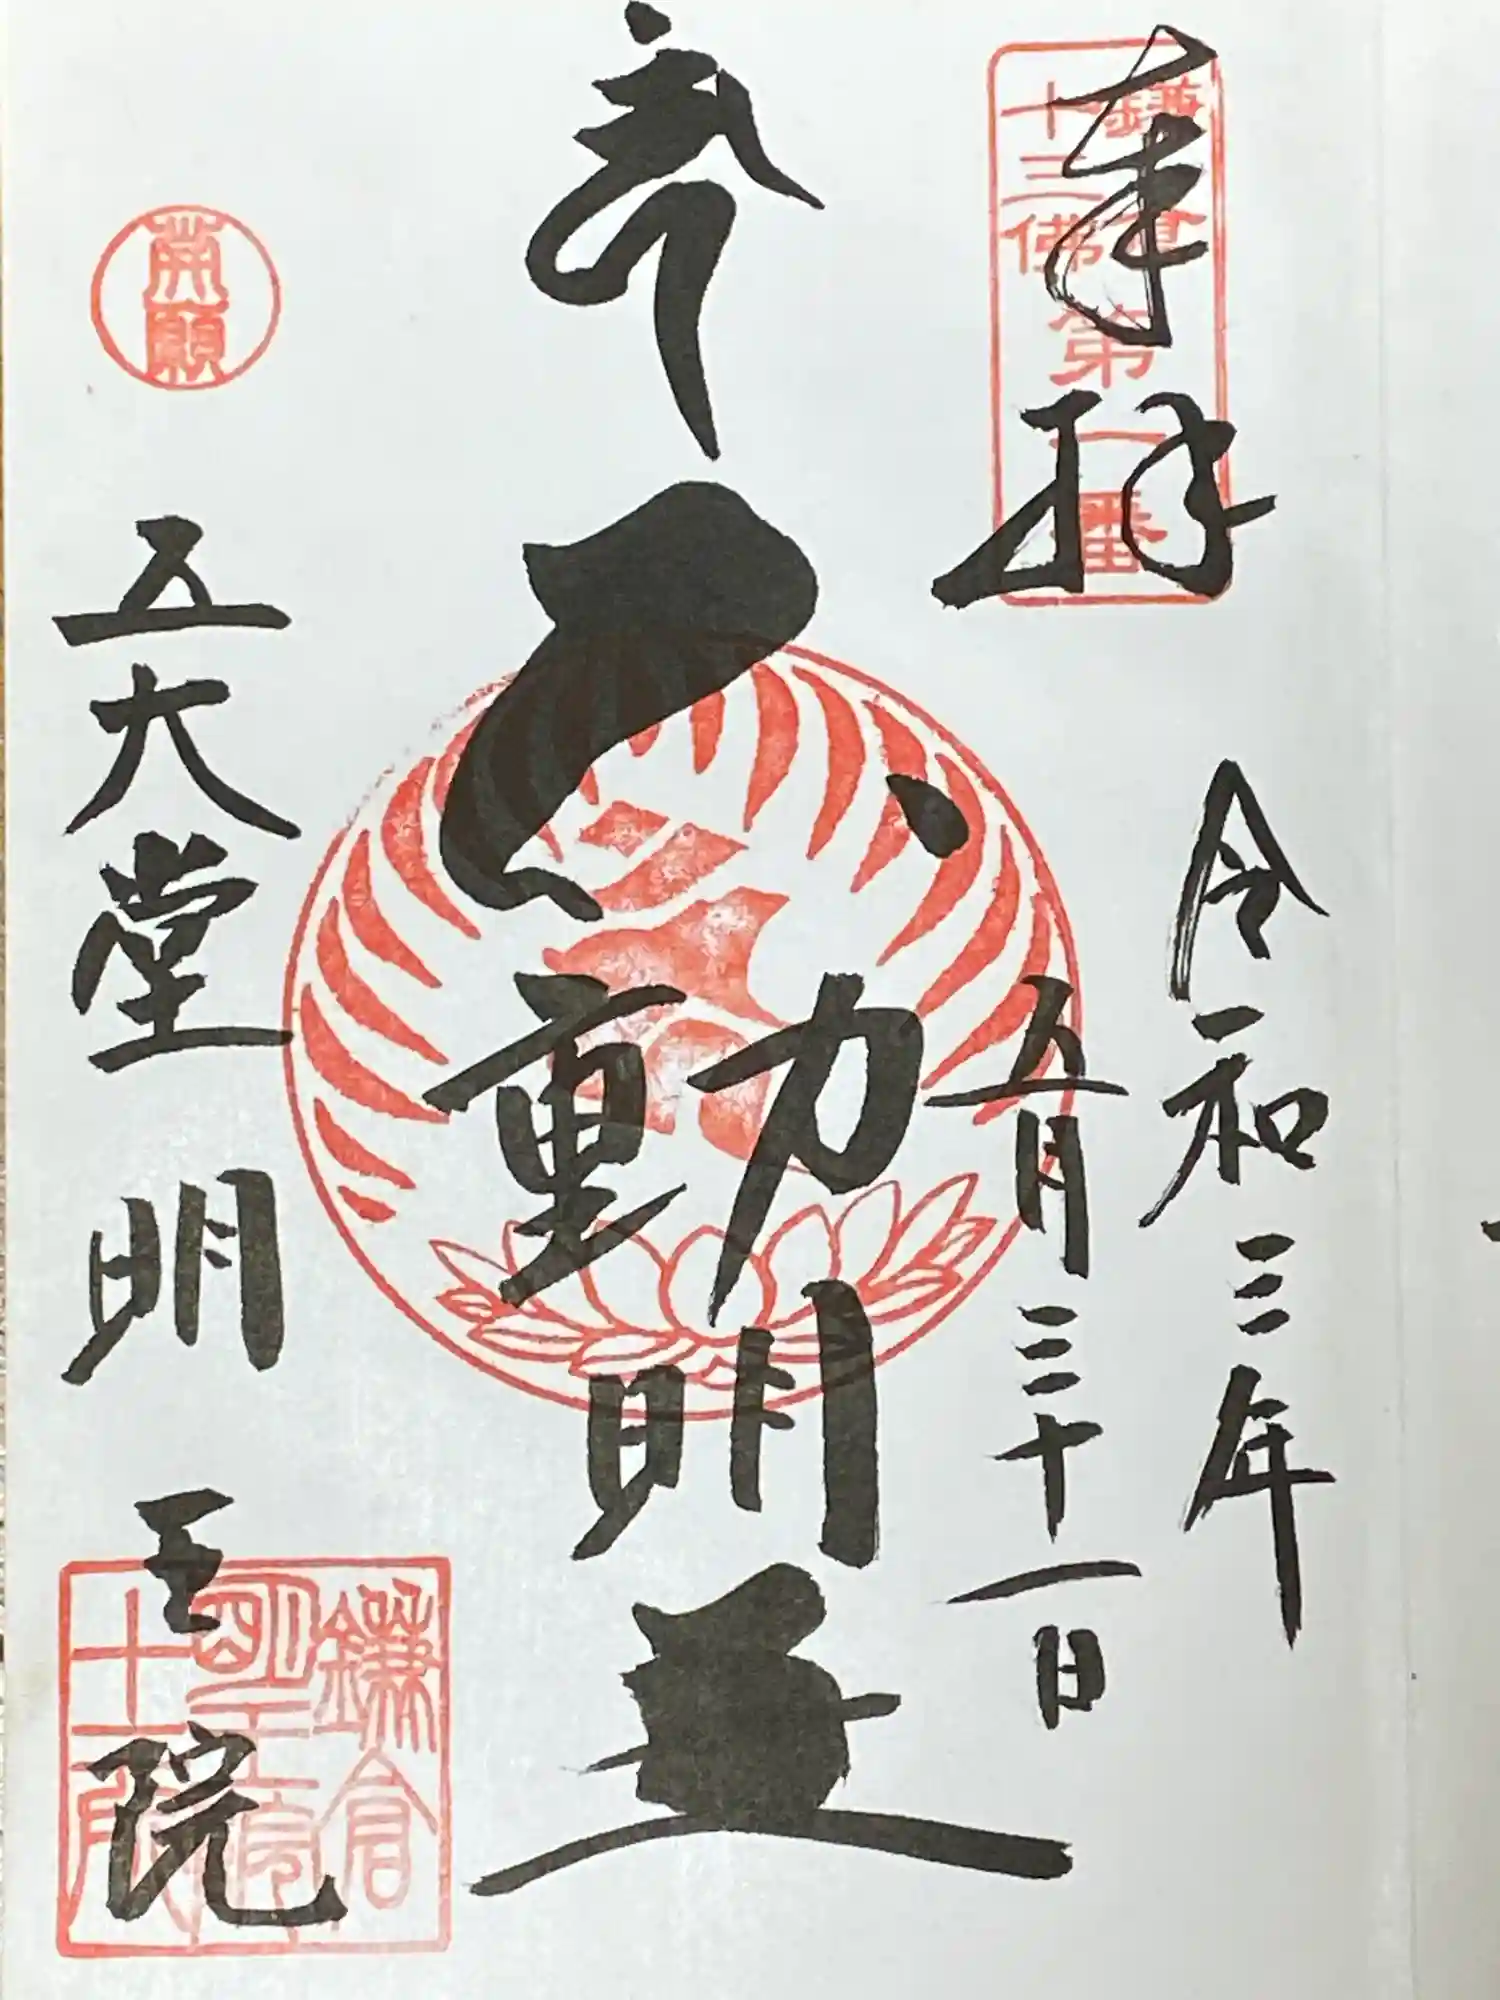 奉拝
鎌倉
十三佛
第一番
令和三年
五月三十一日
不動明王
開願
五大堂明王院
鎌倉
明王院